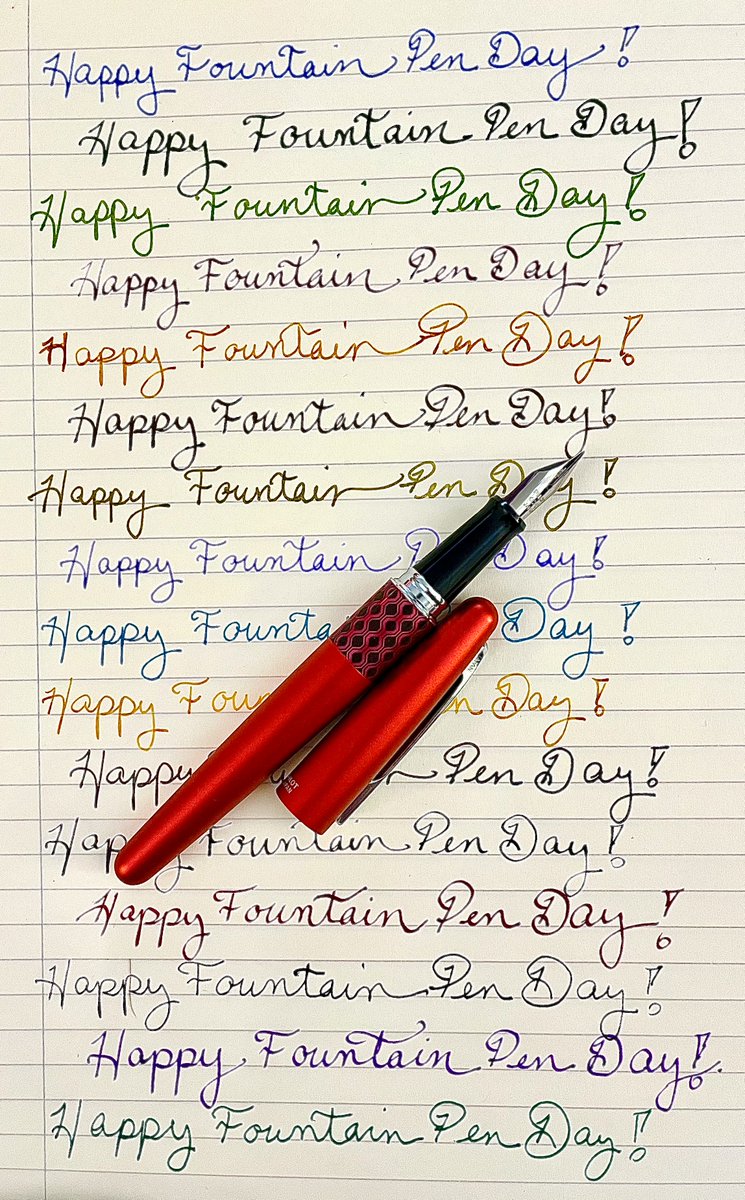 Happy Fountain Pen Day!
Happy Fountain Pen Day!
Happy Fountain Pen Day!
Happy Fountain Pen Day!
Happy Fountain Pen Day!
Happy Fountain Pen Day!
Happy Fountain Pen Day!
Happy Fountain Pen Day!
Happy Founta Day!
Happy Fou n Day!
Happy n Pen Day!
Happy Fountain Pen Day!
Happy Fountain Pen Day!
Happy Fountain Pen Day!
Happy Fountain Pen Day!
Happy Fountain Pen Day!